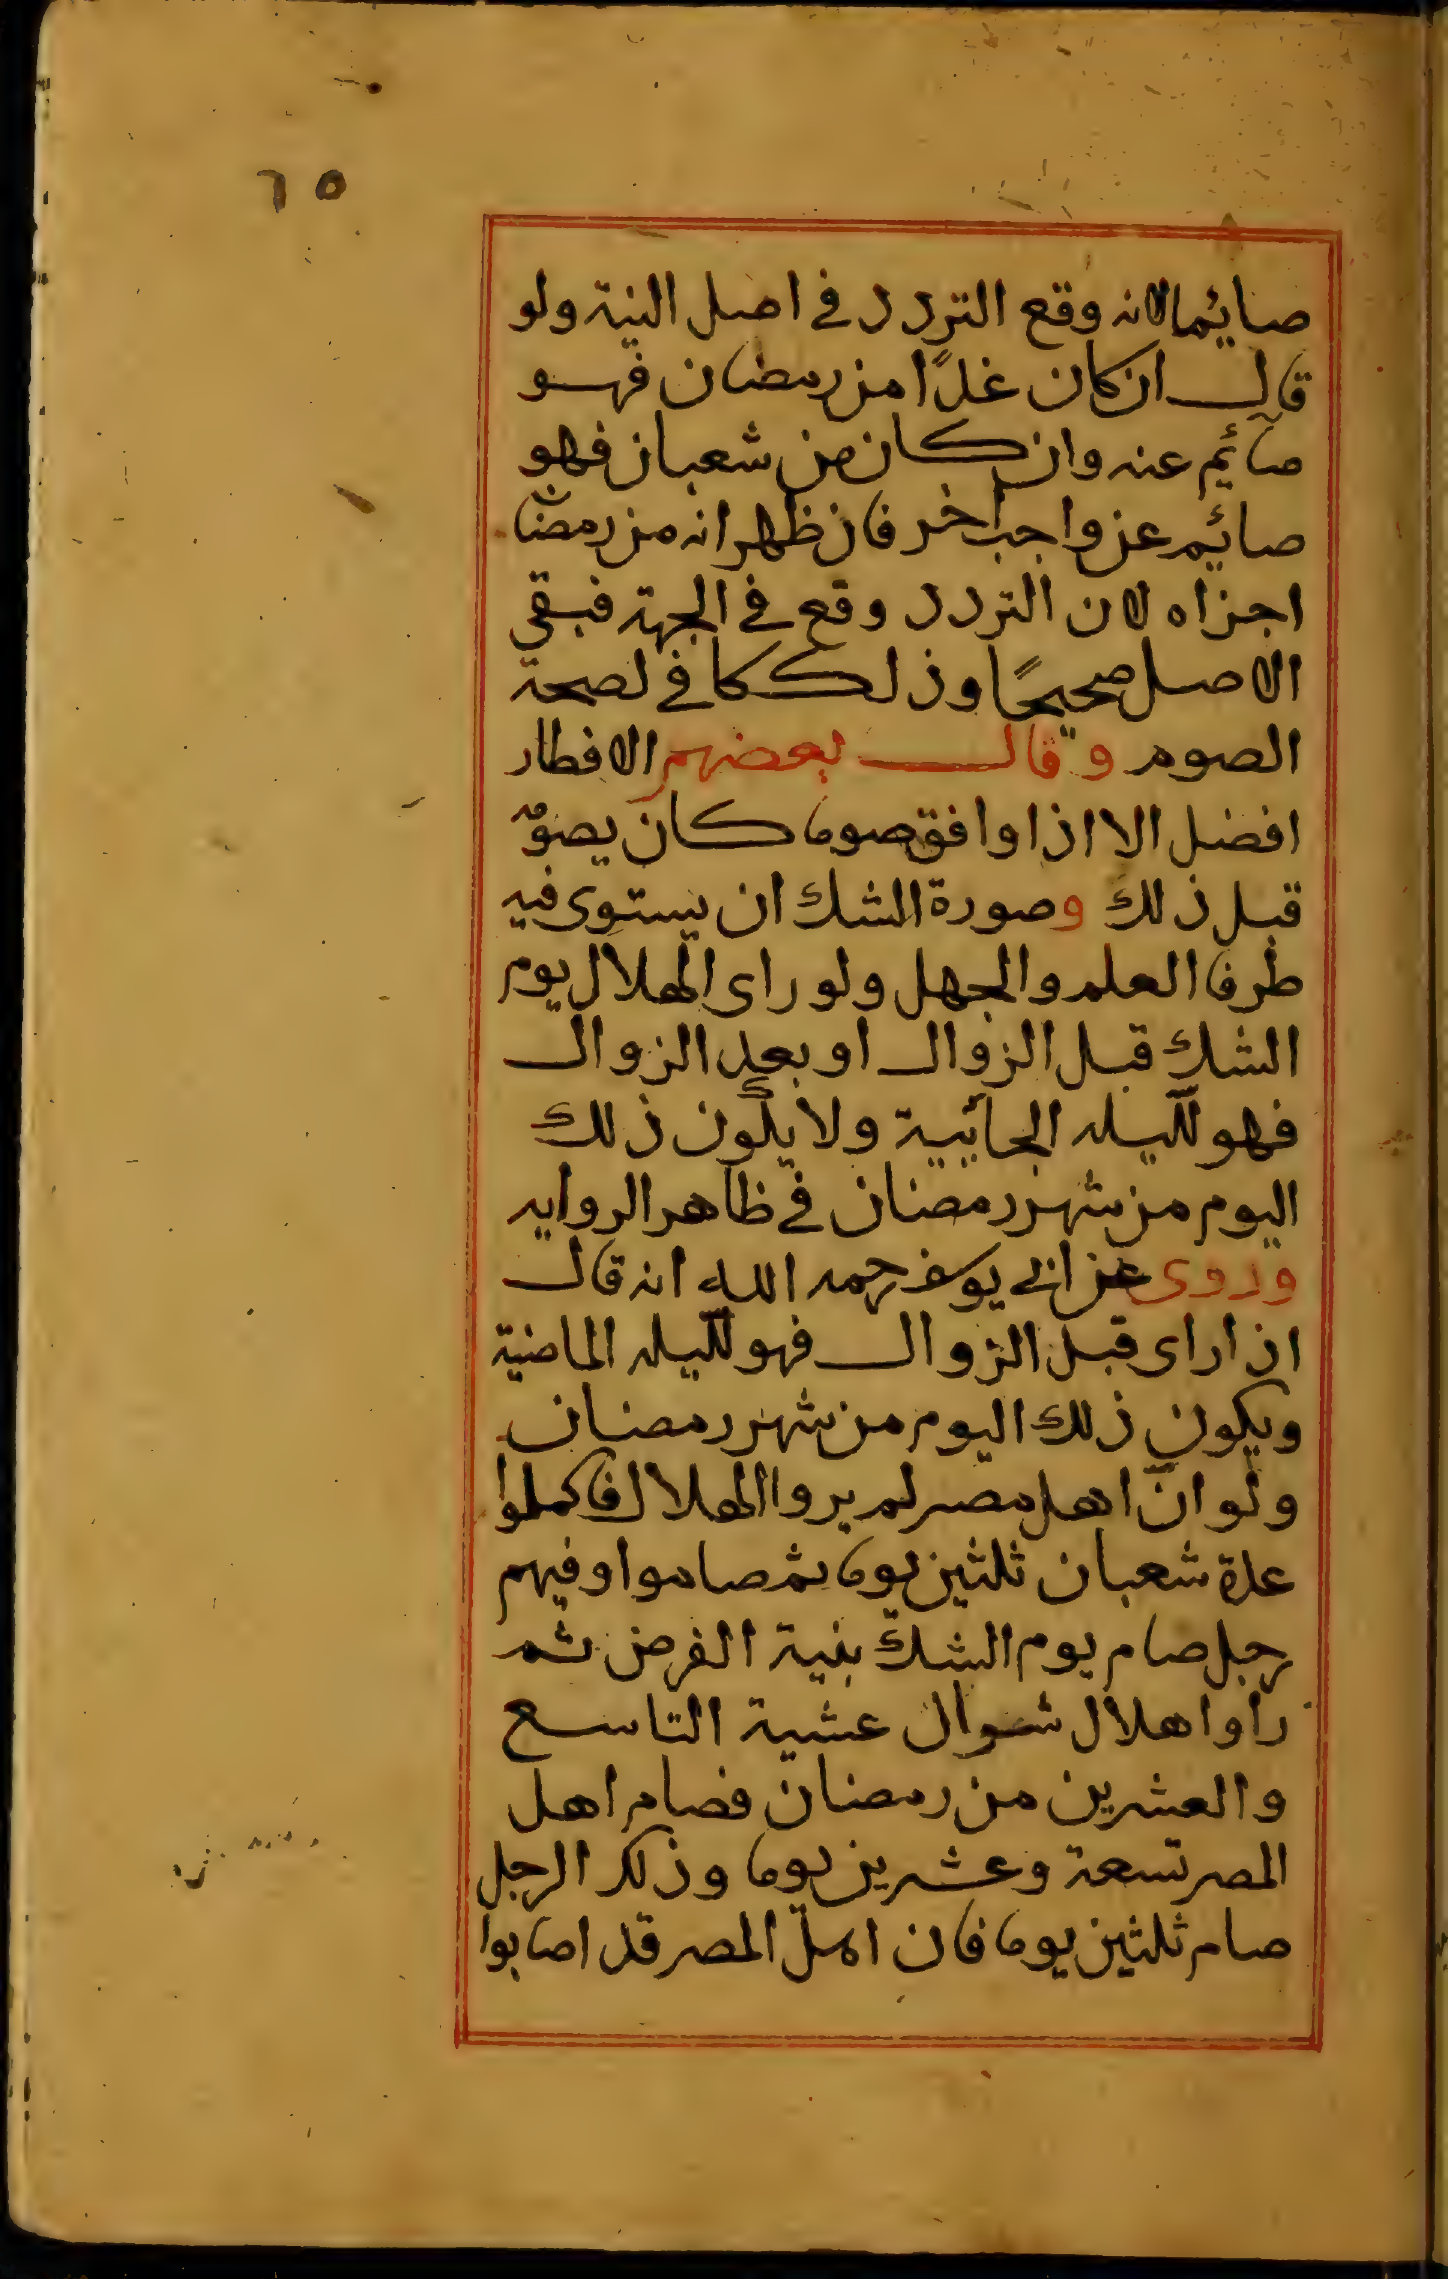 ٦٥
صايئما لانه وقع التردد في اصل النية ولو
قال ان كان غدًا من رمضان فهو
صآئم عنه وان كان من شعبان فهو
صائم عن واجب اخر فان ظهر انه من رمضان
اجزاه لان التردد وقع في الجهة فبقي
الاصل صحيحًا وذلك كافي لصحة
الصوم وقال بعضهم الافطار
افضل الا اذا وافق صوما كان يصومه
قبل ذلك وصورة الشك ان يستوى فيه
طرفا العلم والجهل ولو راى الهلال يوم
الشك قبل الزوال او بعد الزوال
فهو لليله الجائية ولا يكون ذلك
اليوم من شهر رمضان في ظاهر الروايه
وروى عن ابي يوسف رحمه الله انه قال
اذا راى قبل الزوال فهو لليله الماضية
ويكون ذلك اليوم من شهر رمضان
ولو انّ اهل مصر لم يروا الهلال فاكملوا
عدة شعبان ثلثين يوما ثم صاموا وفيهم
رجل صام يوم الشكّ بنية الفرض ثم
راوا هلال شوال عشية التاسع
والعشرين من رمضان فصام اهل
المصر تسعة وعشرين يوما وذلك الرجل
صام ثلثين يوما فان اهل المصر قد اصابوا